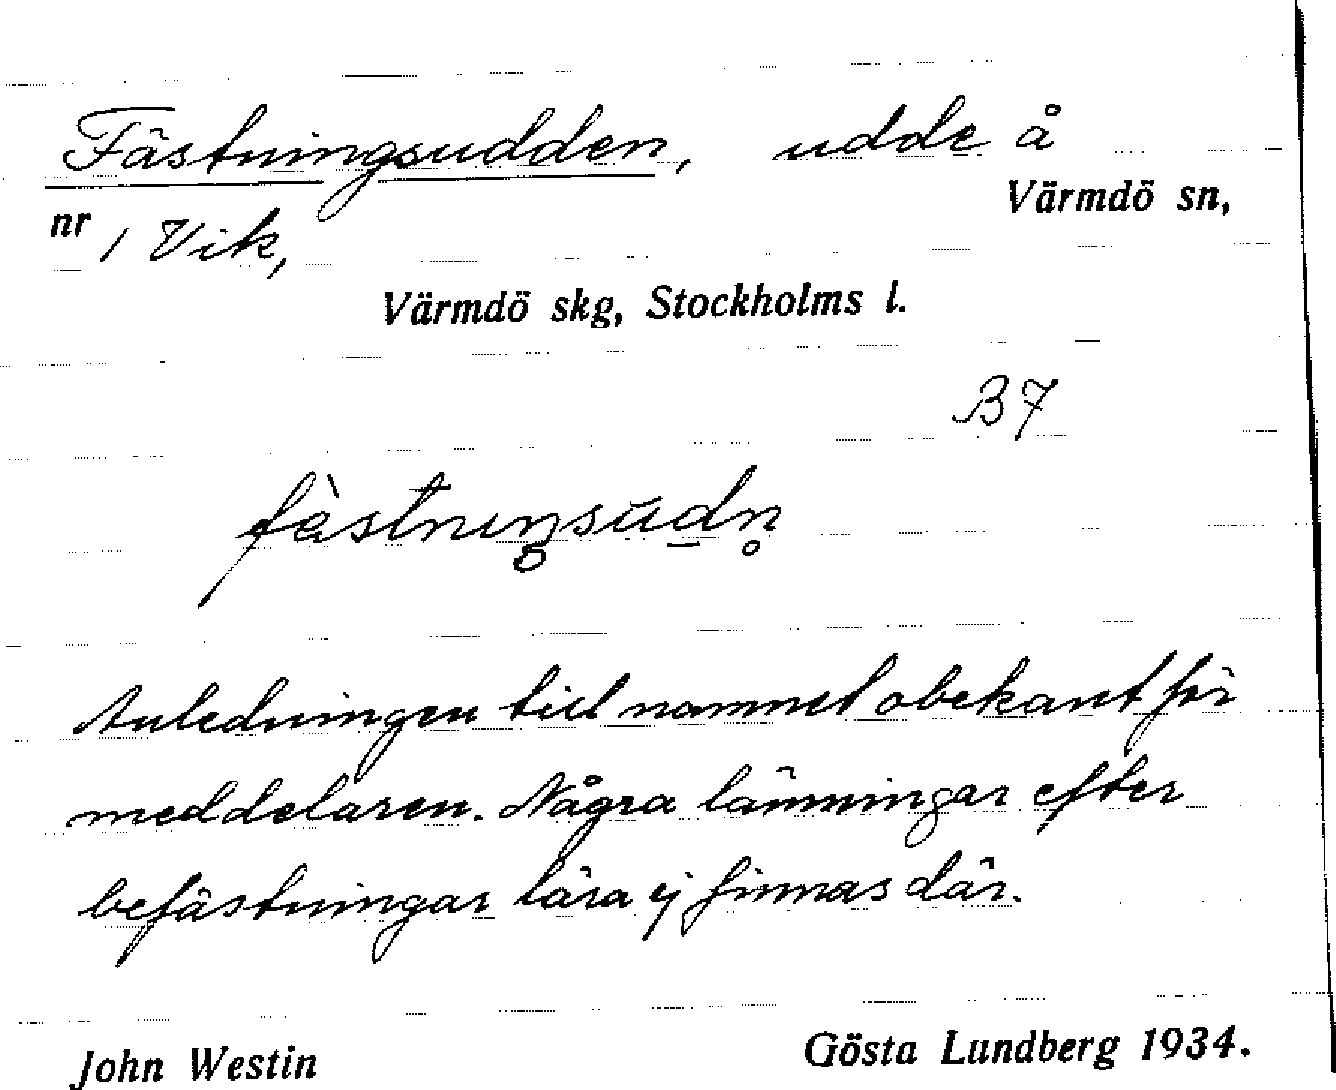 Fästningsudden, udde å
Värmdö sn,
nr 1 Vik,
Värmdö skg, Stockholms l.
B7
fàstnıŋsudn̥
Anledningen till namnet obekant för
meddelaren. Några lämningar efter
befästningar lära ej finnas där.
John Westin
Gösta Lundberg 1934.